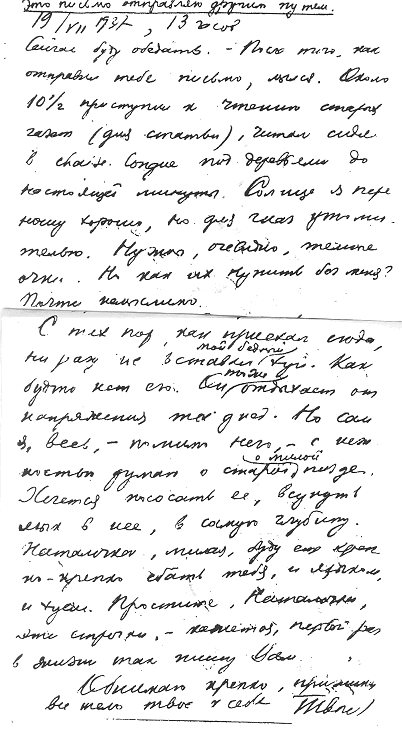 Это письмо отправляю другим путем.
19/VII 1937, 13 часов
Сейчас буду обедать. – После того, как
отправил тебе письмо, мылся. Около
10½ приступил к чтению старых
газет (для статьи), читал сидя
в chaise-longue под деревьями до
настоящей минуты. Солнце я пере
ношу хорошо, но для глаз утоми-
тельно. Нужно, очевидно, темные
очки. Но как их купить без меня?
Почти немыслимо.
С тех пор, как приехал сюда,
мой бедный
ни разу не вставал хуй. Как
тоже
будто нет его. Он отдыхает от
напряжения тех дней. Но сам
я, весь, – помимо него, – с неж
о милой
ностью думаю о старой пизде.
Хочется пососать ее, всунуть
язык в нее, в самую глубину.
Наталочка, милая, буду еще креп
ко-крепко ебать тебя, и языком,
и хуем. Простите, Наталочка,
эти строчки, – кажется, первый раз
в жизни так пишу Вам.
Обнимаю крепко, прижимая
все тело твое к себе Твой